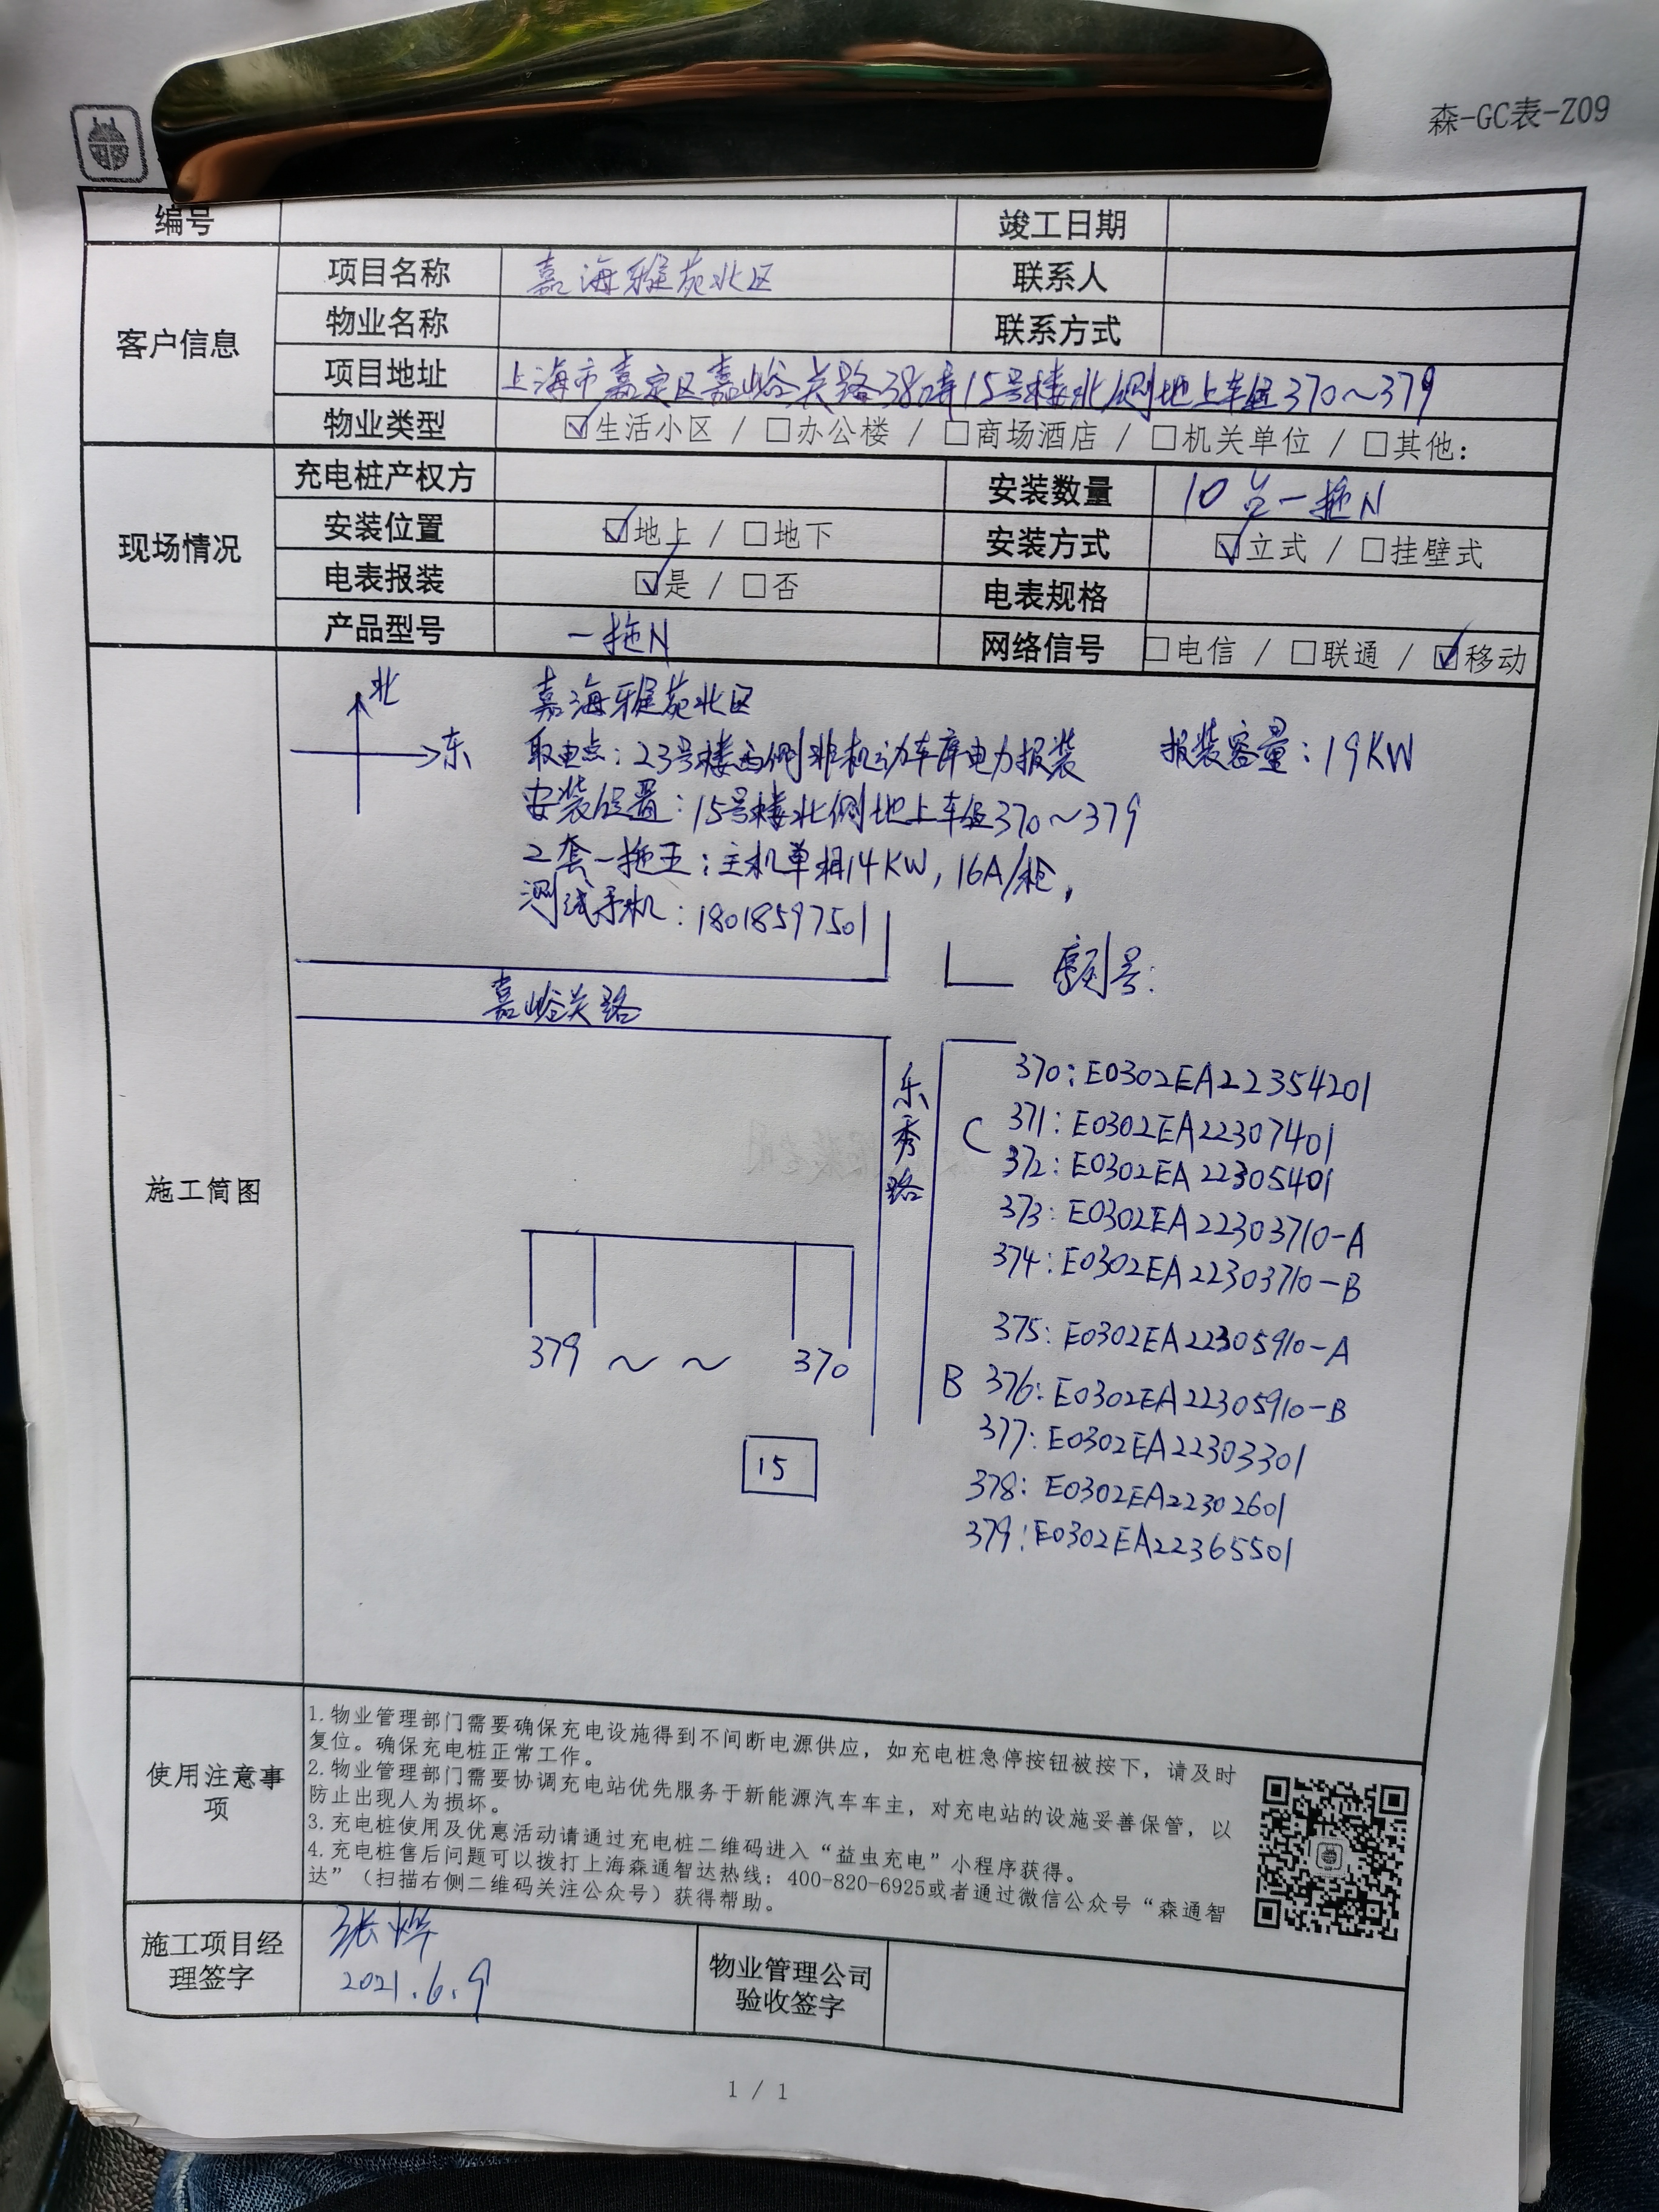 森-GC表-Z09
编号 竣工日期
客户信息
项目名称 嘉海雅苑北区 联系人
物业名称 联系方式
项目地址 上海市嘉定区嘉峪关路380弄15号楼北侧地上车位370~379
物业类型 ☑生活小区 / □办公楼 / □商场酒店 / □机关单位 / □其他:
现场情况
充电桩产权方 安装数量 10台一拖N
安装位置 ☑地上 / □地下 安装方式 ☑立式 / □挂壁式
电表报装 ☑是 / □否 电表规格
产品型号 一拖N 网络信号 □电信 / □联通 / ☑移动
施工简图
北
东
嘉海雅苑北区
取电点:23号楼西侧非机动车库电力报装 报装容量:19KW
安装位置:15号楼北侧地上车位370~379
2套一拖五:主机单相14KW,16A/枪,
测试手机:18018597501
序列号:
嘉峪关路
乐秀路
370:E0302EA22354201
C 371:E0302EA22307401
372:E0302EA22305401
373:E0302EA22303710-A
374:E0302EA22303710-B
375:E0302EA22305910-A
B 376:E0302EA22305910-B
377:E0302EA22303301
378:E0302EA22302601
379:E0302EA22365501
379 ~ ~ 370
15
使用注意事项
1.物业管理部门需要确保充电设施得到不间断电源供应,如充电桩急停按钮被按下,请及时
复位。确保充电桩正常工作。
2.物业管理部门需要协调充电站优先服务于新能源汽车车主,对充电站的设施妥善保管,以
防止出现人为损坏。
3.充电桩使用及优惠活动请通过充电桩二维码进入“益虫充电”小程序获得。
4.充电桩售后问题可以拨打上海森通智达热线:400-820-6925或者通过微信公众号“森通智
达”(扫描右侧二维码关注公众号)获得帮助。
施工项目经理签字 张烨
2021.6.9
物业管理公司验收签字
1 / 1